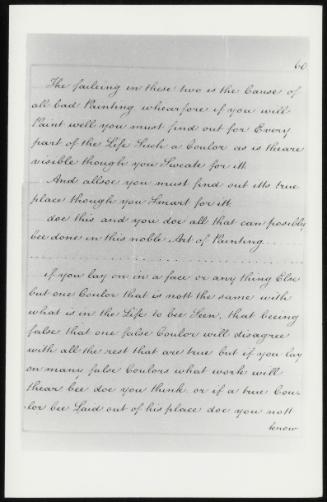 60
The faileing in these two is the Cause of
all bad Painting whearfore if you will
Paint well you must find out for Every
part of the Life Such a Coulor as is theare
visible though you Sweate for itt
And allsoe you must find out itts true
place though you Smart for itt
doe this and you doe all that can possibly
bee done in this noble Art of Painting
if you lay on in a face or any thing Else
but one Coulor that is nott the same with
what is in the Life to bee Seen, that beeing
false that one false Coulor will disagree
with all the rest that are true but if you lay
on many false Coulors what work will
thear bee doe you think or if a true Cou-
lor bee Laid out of his place doe you nott
know